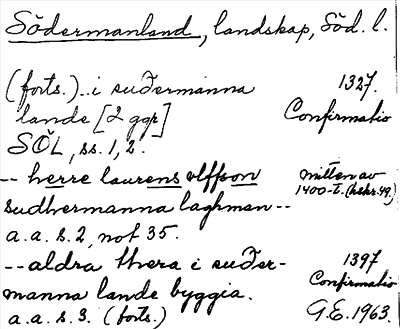 Södermanland, landskap, Söd. l.
(forts.)..i suðermanna 1327.
lande [2 ggr] Confirmatio
SÖL, ss. 1, 2.
-- herre laurens vlffson mitten av
sudhermanna laghman-- 1400-t. (hskr. 49)
a.a. s. 2, not 35.
--aldra thera i suðer- 1397
manna lande byggia. Confirmatio
a.a. s. 3. (forts.) G.E. 1963.